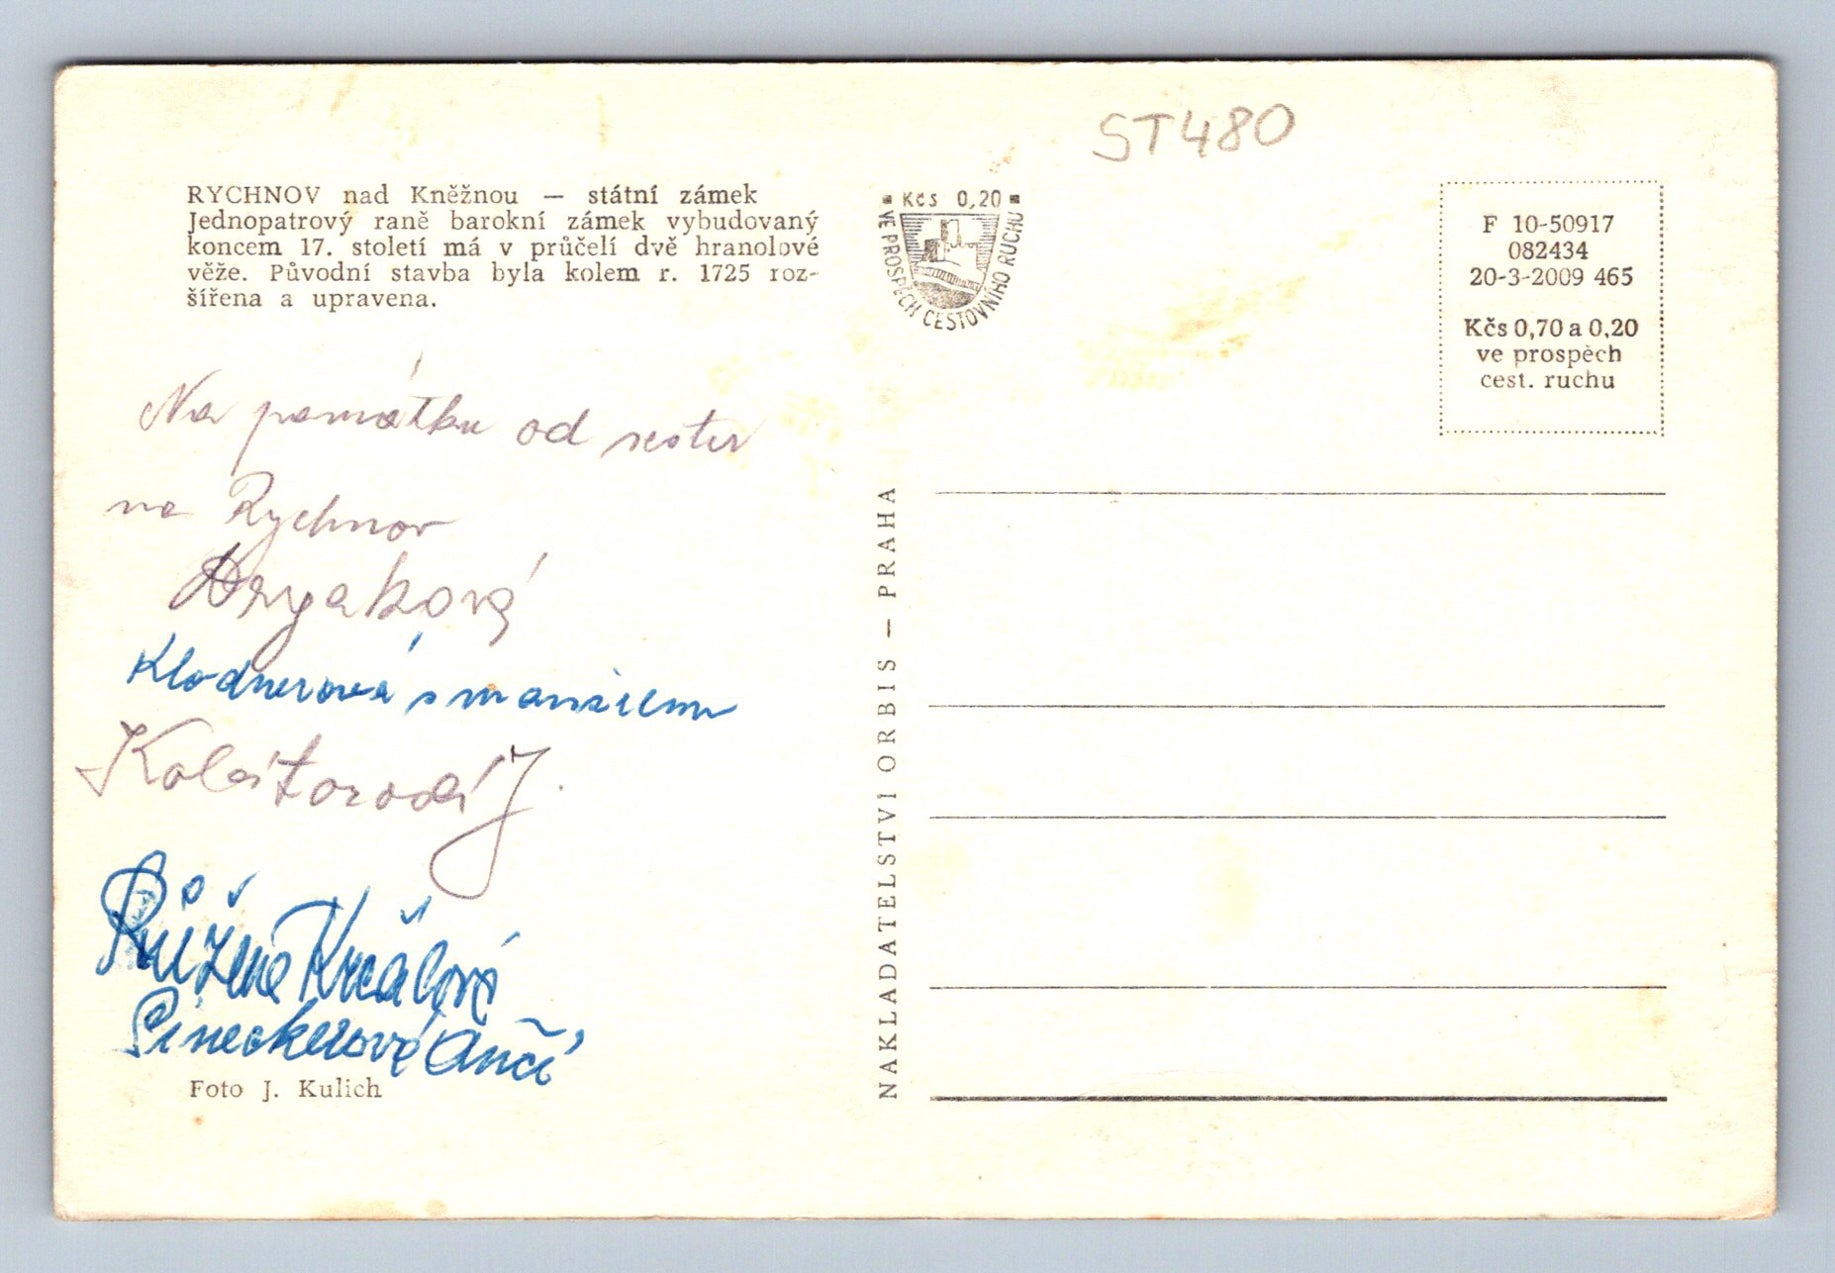 ST480
RYCHNOV nad Kněžnou — státní zámek
Jednopatrový raně barokní zámek vybudovaný
koncem 17. století má v průčelí dvě hranolové
věže. Původní stavba byla kolem r. 1725 roz-
šířena a upravena.
Kčs 0,20
VE PROSPĚCH CESTOVNÍHO RUCHU
F 10-50917
082434
20-3-2009 465
Kčs 0,70 a 0,20
ve prospěch
cest. ruchu
Na památku od sester
na Rychnov
Klodnerová s manželem
J.
Růžena Krčálová
Sineckerová Anči
Foto J. Kulich
NAKLADATELSTVÍ ORBIS — PRAHA